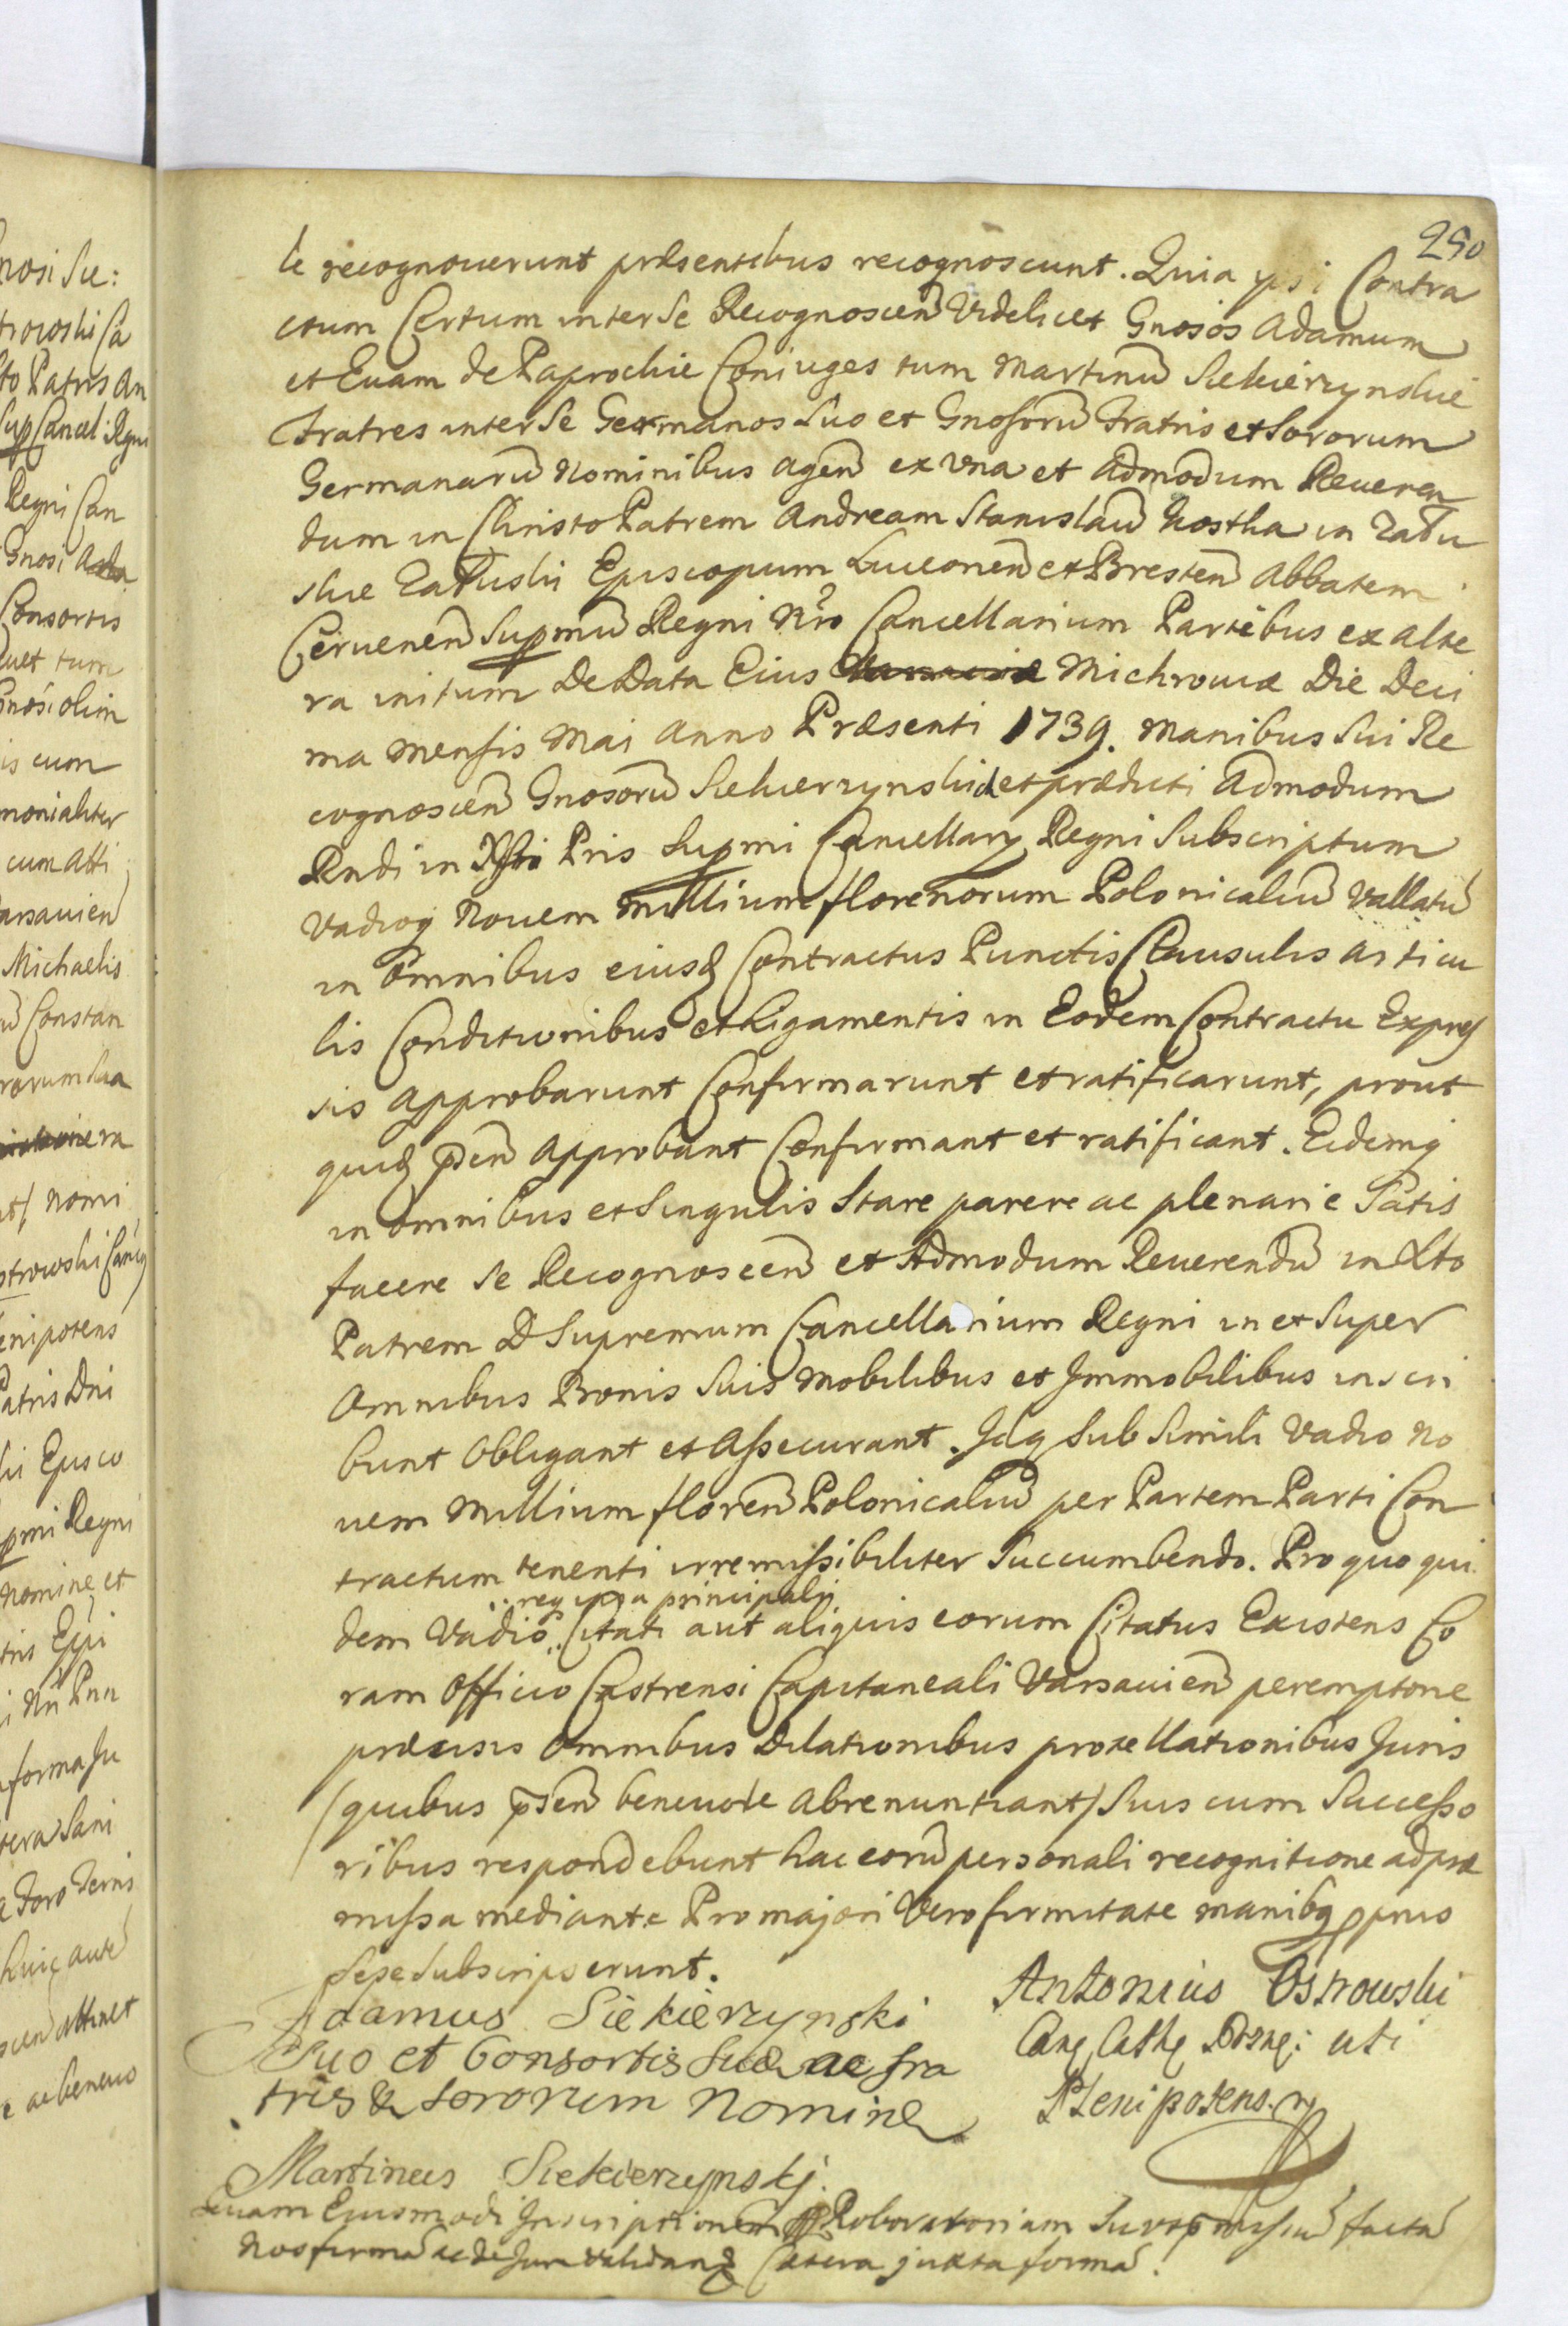 250
le recognoverunt præsentibus recognoscunt. Quia ipsi Contra
ctum Certum inter se Recognoscen Videlicet Gnosos Adamum
et Evam de Paprockie Coniuges tum Martinũ Siekierzynskie
Fratres inter Se Germanos Suo et Gnosorũ Fratris et Sororum
Germanarũ Nominibus agen ex Una et Admodum Reveren
dum in Christo Patrem Andream Stanislaũ Kostka in Zału
skie Załuski Episcopum Luceonen et Bresten Abbatem
Cervenen Supmũ Regni Nro Cancellarium Partibus ex alte
ra initum De Data Eius Michrowiæ Die Deci
ma Mensis Mai Anno Præsenti 1739. Manibus Sui Re
cognoscen Gnosorũ Siekierzynskich et prædicti Admodum
Rndi in Xsto Pris Supmi Cancellarÿ Regni Subscriptum
Vadioq Novem Millium florenorum Polonicaliũ Vallatũ
in Omnibus eiusd Contractus Punctis Clausulis articu
lis Conditionibus et Ligamentis in Eodem Contractu Expres
sis Approbarunt Confirmarunt et ratificarunt, prout
quid pñen Approbant Confirmant et ratificant. Eidemq
in omnibus et Singulis Stare parere ac plenarie Satis
facere Se Recognoscen et Admodum Reverendũ in Xto
Patrem D Supremum Cancellarium Regni in et Super
Omnibus Bonis Suis Mobilibus et Immobilibus inscri
bunt Obligant et Assecurant. Idq Sub Simili Vadio No
vem Millium floren Polonicaliũ per Partem Parti Con
tractum tenenti irremissibiliter Succumbendo. Pro quo qui
principali
dem Vadio Citati aut aliquis eorum Citatus Existens Co
ram Officio Castrensi Capitaneali Varsavien peremptorie
præcisis Omnibus Dilationibus procellationibus Juris
(quibus pñen benevole Abrenuntiant) Suis cum Successo
ribus respondebunt hac eorũ personali recognitione ad præ
missa mediante Pro majori Vero firmitate manibq ppriis
sese subscripserunt.
Adamus Siekierzynski
Suo et Consortis Suæ ac fra
tris & Sororum Nomine
Martinus Siekierzynskj.
Antonius Ostrowski
Can Cath Pozn: uti
Plenipotens. m
Quam Eiusmodi Inscriptionem Roboratoriam factã
Nos firmã ac de Jure Cætera juxta formã.
nosi Sie:
trowski Ca
to Patris An
Sup Cancel: Regni
Regni Can
Gnosi
Consortis
tum
Gnosi olim
is cum
monialiter
cum Atti
arsavien
Michaelis
Constan
rorum Sua
nomi
strowski
enipotens
Patris Dni
ki Episco
pmi Regni
nomine et
tris Eppi
forma Ju
a Foro
huic autẽ
attinet
e ac benevo